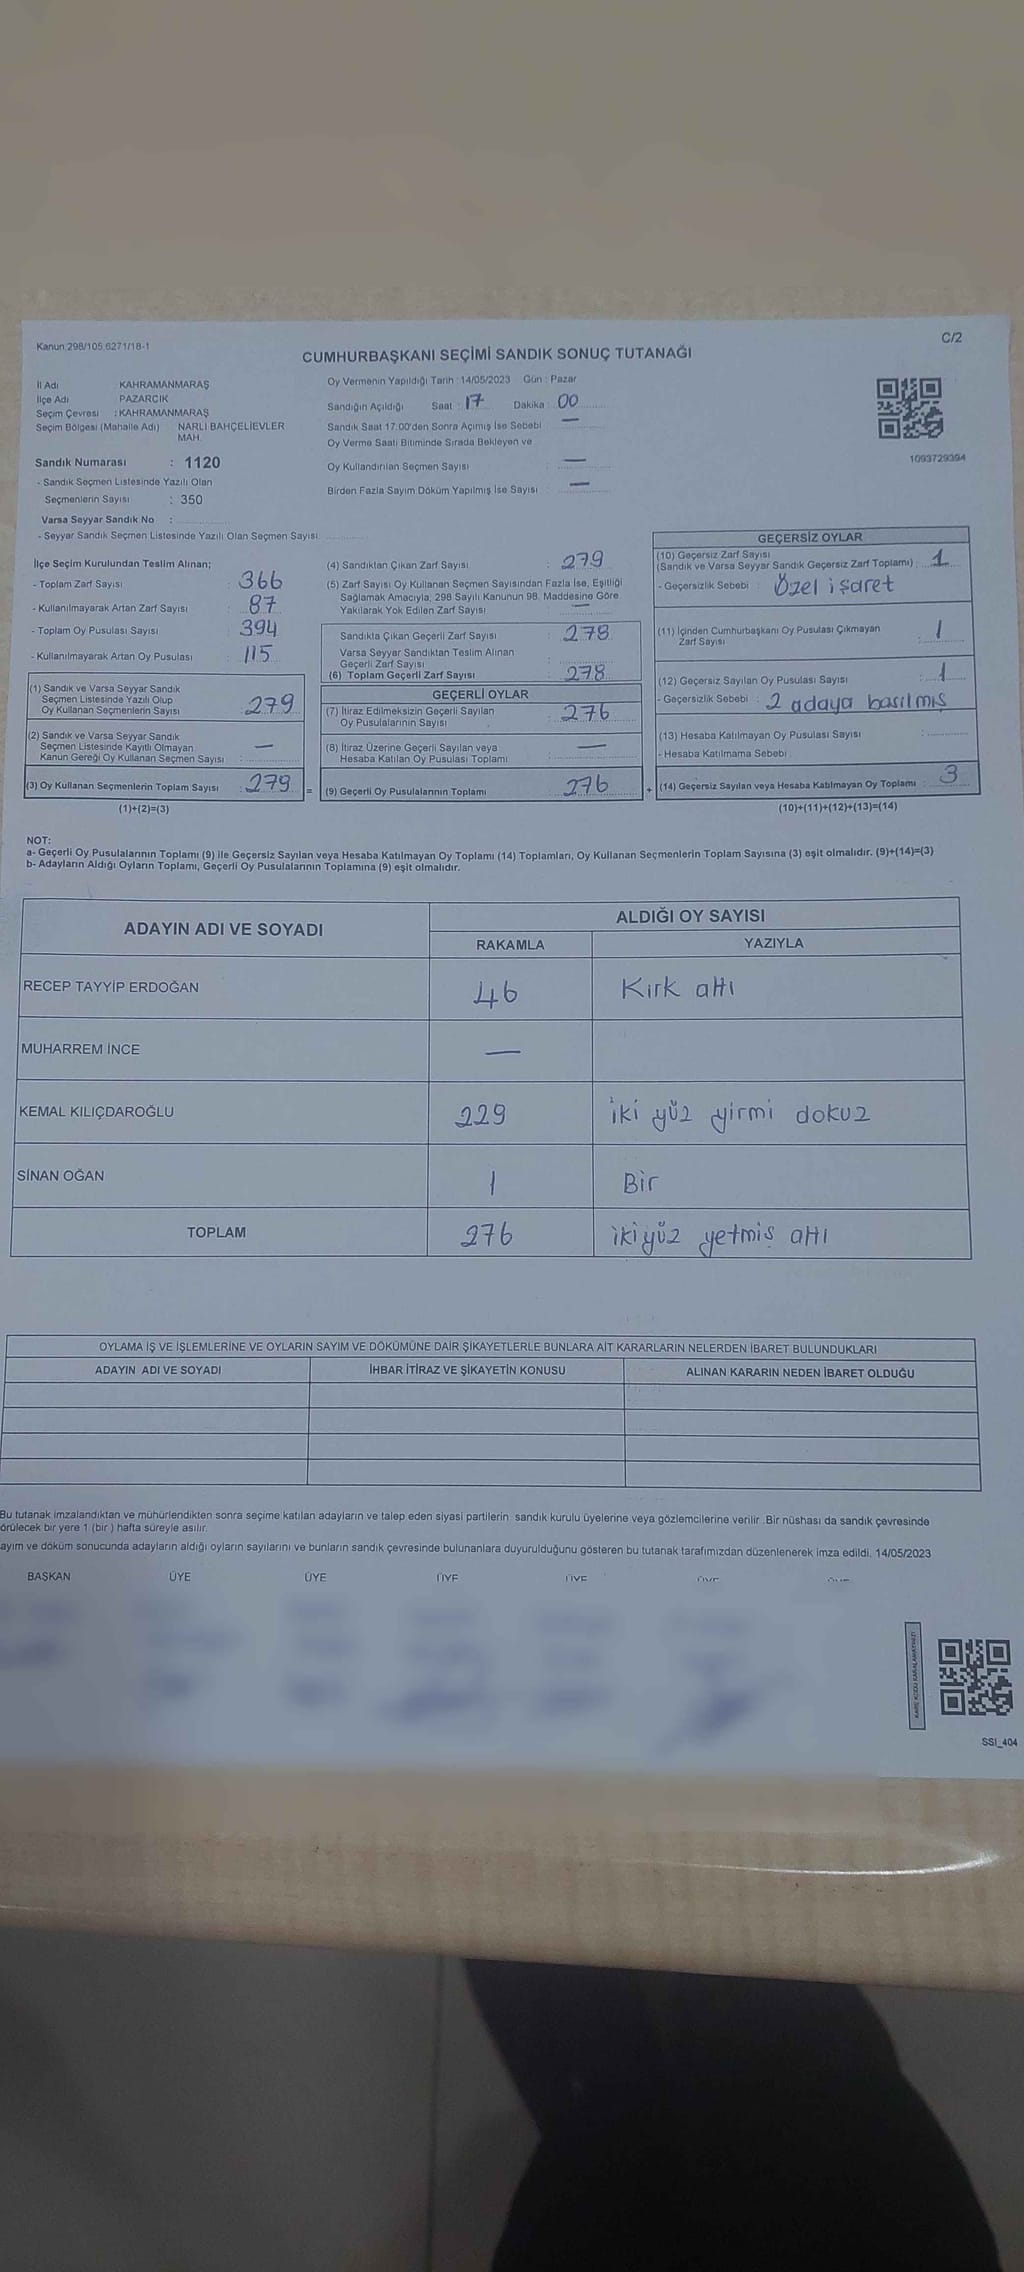 Kanun;298/105,6271/18-1
C/2
CUMHURBAŞKANI SEÇİMİ SANDIK SONUÇ TUTANAĞI
İl Adı KAHRAMANMARAŞ
İlçe Adı PAZARCIK
Seçim Çevresi : KAHRAMANMARAŞ
Seçim Bölgesi (Mahalle Adı) NARLI BAHÇELİEVLER
MAH.
Sandık Numarası : 1120
- Sandık Seçmen Listesinde Yazılı Olan
Seçmenlerin Sayısı : 350
Varsa Seyyar Sandık No :
- Seyyar Sandık Seçmen Listesinde Yazılı Olan Seçmen Sayısı
Oy Vermenin Yapıldığı Tarih : 14/05/2023 Gün : Pazar
Sandığın Açıldığı Saat : 17 Dakika : 00
Sandık Saat 17.00'den Sonra Açımış İse Sebebi : —
Oy Verme Saati Bitiminde Sırada Bekleyen ve
Oy Kullandırılan Seçmen Sayısı : —
Birden Fazla Sayım Döküm Yapılmış İse Sayısı : —
1093729394
İlçe Seçim Kurulundan Teslim Alınan;
- Toplam Zarf Sayısı : 366
- Kullanılmayarak Artan Zarf Sayısı : 87
- Toplam Oy Pusulası Sayısı : 394
- Kullanılmayarak Artan Oy Pusulası : 115
(1) Sandık ve Varsa Seyyar Sandık
Seçmen Listesinde Yazılı Olup
Oy Kullanan Seçmenlerin Sayısı : 279
(2) Sandık ve Varsa Seyyar Sandık
Seçmen Listesinde Kayıtlı Olmayan
Kanun Gereği Oy Kullanan Seçmen Sayısı : —
(3) Oy Kullanan Seçmenlerin Toplam Sayısı : 279 =
(1)+(2)=(3)
(4) Sandıktan Çıkan Zarf Sayısı : 279
(5) Zarf Sayısı Oy Kullanan Seçmen Sayısından Fazla İse, Eşitliği
Sağlamak Amacıyla, 298 Sayılı Kanunun 98. Maddesine Göre
Yakılarak Yok Edilen Zarf Sayısı : —
Sandıkta Çıkan Geçerli Zarf Sayısı : 278
Varsa Seyyar Sandıktan Teslim Alınan
Geçerli Zarf Sayısı :
(6) Toplam Geçerli Zarf Sayısı : 278
GEÇERLİ OYLAR
(7) İtiraz Edilmeksizin Geçerli Sayılan
Oy Pusulalarının Sayısı : 276
(8) İtiraz Üzerine Geçerli Sayılan veya
Hesaba Katılan Oy Pusulası Toplamı : —
(9) Geçerli Oy Pusulalarının Toplamı 276 +
GEÇERSİZ OYLAR
(10) Geçersiz Zarf Sayısı
(Sandık ve Varsa Seyyar Sandık Geçersiz Zarf Toplamı) : 1
- Geçersizlik Sebebi : Özel işaret
(11) İçinden Cumhurbaşkanı Oy Pusulası Çıkmayan
Zarf Sayısı : 1
(12) Geçersiz Sayılan Oy Pusulası Sayısı : 1
- Geçersizlik Sebebi : 2 adaya basılmış
(13) Hesaba Katılmayan Oy Pusulası Sayısı :
- Hesaba Katılmama Sebebi :
(14) Geçersiz Sayılan veya Hesaba Katılmayan Oy Toplamı : 3
(10)+(11)+(12)+(13)=(14)
NOT:
a- Geçerli Oy Pusulalarının Toplamı (9) ile Geçersiz Sayılan veya Hesaba Katılmayan Oy Toplamı (14) Toplamları, Oy Kullanan Seçmenlerin Toplam Sayısına (3) eşit olmalıdır. (9)+(14)=(3)
b- Adayların Aldığı Oyların Toplamı, Geçerli Oy Pusulalarının Toplamına (9) eşit olmalıdır.
ADAYIN ADI VE SOYADI ALDIĞI OY SAYISI
RAKAMLA YAZIYLA
RECEP TAYYİP ERDOĞAN 46 Kırk altı
MUHARREM İNCE —
KEMAL KILIÇDAROĞLU 229 iki yüz yirmi dokuz
SİNAN OĞAN 1 Bir
TOPLAM 276 ikiyüz yetmiş altı
OYLAMA İŞ VE İŞLEMLERİNE VE OYLARIN SAYIM VE DÖKÜMÜNE DAİR ŞİKAYETLERLE BUNLARA AİT KARARLARIN NELERDEN İBARET BULUNDUKLARI
ADAYIN ADI VE SOYADI İHBAR İTİRAZ VE ŞİKAYETİN KONUSU ALINAN KARARIN NEDEN İBARET OLDUĞU
Bu tutanak imzalandıktan ve mühürlendikten sonra seçime katılan adayların ve talep eden siyasi partilerin sandık kurulu üyelerine veya gözlemcilerine verilir .Bir nüshası da sandık çevresinde
örülecek bir yere 1 (bir ) hafta süreyle asılır.
ayım ve döküm sonucunda adayların aldığı oyların sayılarını ve bunların sandık çevresinde bulunanlara duyurulduğunu gösteren bu tutanak tarafımızdan düzenlenerek imza edildi. 14/05/2023
BAŞKAN ÜYE ÜYE ÜYE ÜYE ÜYE
KARE KODU KARALAMAYINIZ!
SSI_404